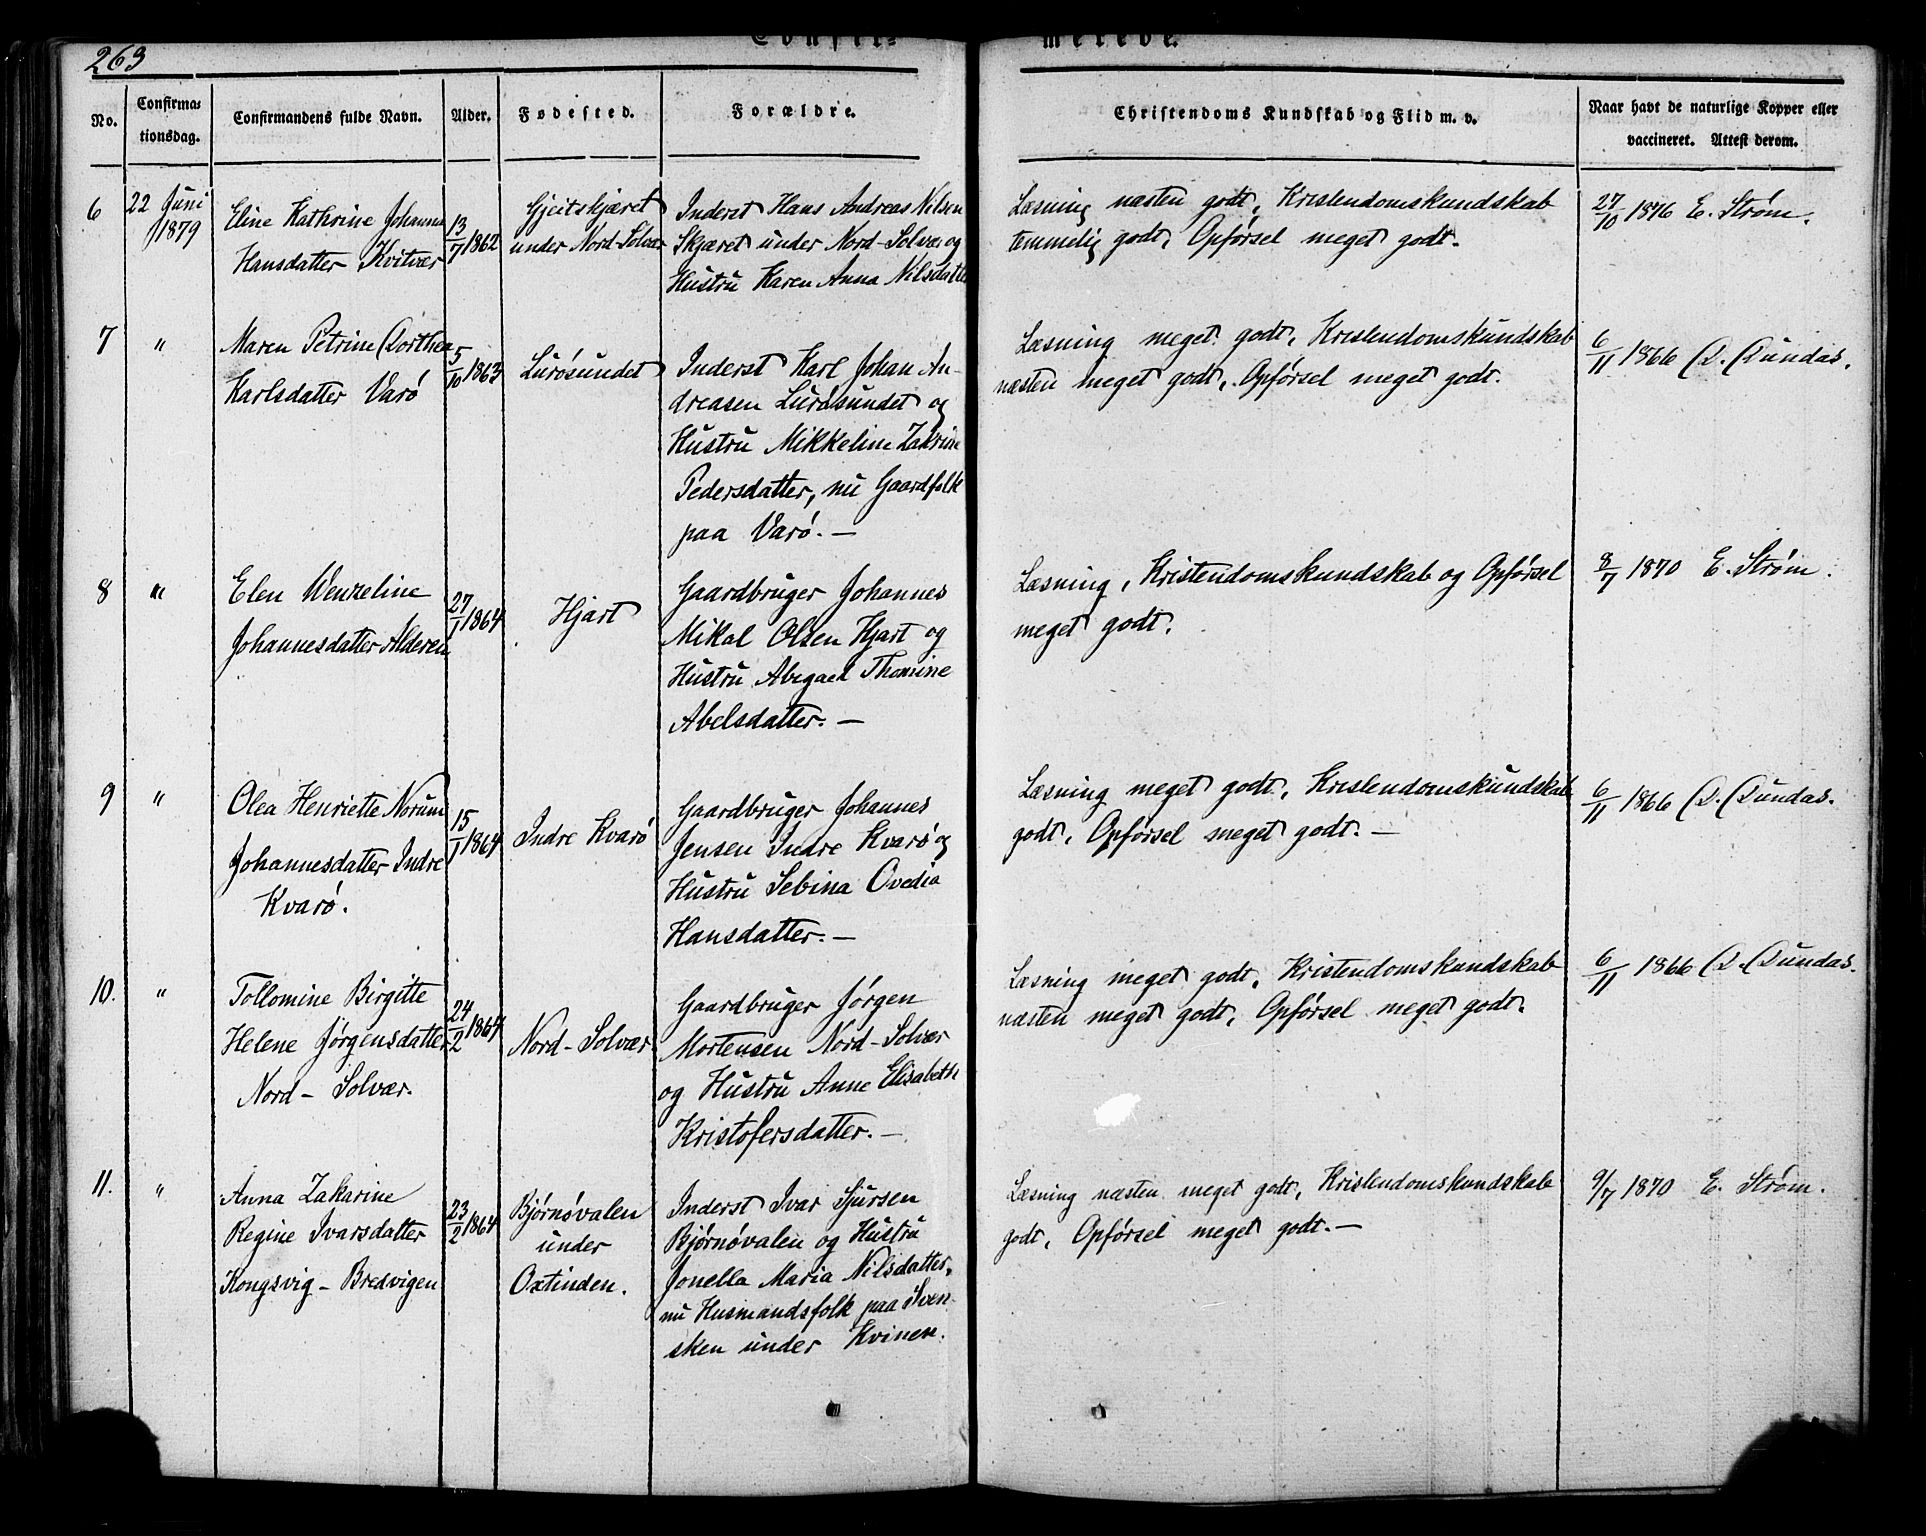 263
Confir=
merede.
No.
Confirma=
tionsdag.
Confirmandens fulde Navn.
Alder.
Fødested.
Forældre.
Christendoms Kundskab og Flid m. v.
Naar havt de naturlige Kopper eller
vaccineret. Attest derom.
6
22 Juni
1879
Eline Kathrine Johanna
Hansdatter Kvitvær
13/7 1862
Gjeitskjæret
under Nord-Solvær
Inderst Hans Andreas Nilsen
Skjæret under Nord-Solvær og
Hustru Karen Anna Nilsdatter
Læsning næsten godt, Kristendomskundskab
temmelig godt, Opførsel meget godt.
27/10 1876 E. Strøm.
7
"
Maren Petrine Dorthea
Karlsdatter Varø
5/10 1863
Lurøsundet
Inderst Karl Johan An-
dreasen Lurøsundet og
Hustru Mikkeline Zakrine
Pedersdatter, nu Gaardfolk
paa Varø. —
Læsning meget godt, Kristendomskundskab
næsten meget godt, Opførsel meget godt.
6/11 1866 D. Dundas.
8
"
Elen Wenzeline
Johannesdatter Alderen
27/1 1864
Hjart
Gaardbruger Johannes
Mikal Olsen Hjart og
Hustru Abegael Thomine
Abelsdatter. —
Læsning, Kristendomskundskab og Opførsel
meget godt.
8/7 1870 E. Strøm.
9
"
Olea Henriette Norum
Johannesdatter Indre
Kvarø.
15/1 1864
Indre Kvarø
Gaardbruger Johannes
Jensen Indre Kvarø og
Hustru Sebina Ovedia
Hansdatter. —
Læsning meget godt, Kristendomskundskab
godt, Opførsel meget godt. —
6/11 1866 D. Dundas.
10.
"
Tollomine Birgitte
Helene Jørgensdatter
Nord-Solvær.
24/2 1864
Nord-Solvær
Gaardbruger Jørgen
Mortensen Nord-Solvær
og Hustru Anne Elisabeth
Kristofersdatter. —
Læsning meget godt, Kristendomskundskab
næsten meget godt, Opførsel meget godt.
6/11 1866 D. Dundas.
11.
"
Anna Zakarine
Regine Ivarsdatter
Kongsvig - Bredvigen
23/2 1864
Bjørnøvalen
under
Oxtinden.
Inderst Ivar Sjursen
Bjørnøvalen og Hustru
Jonella Maria Nilsdatter,
nu Husmandsfolk paa Sven-
sken under Kvinen.
Læsning næsten meget godt, Kristendomskundskab
godt, Opførsel meget godt. —
9/7 1870 E. Strøm.